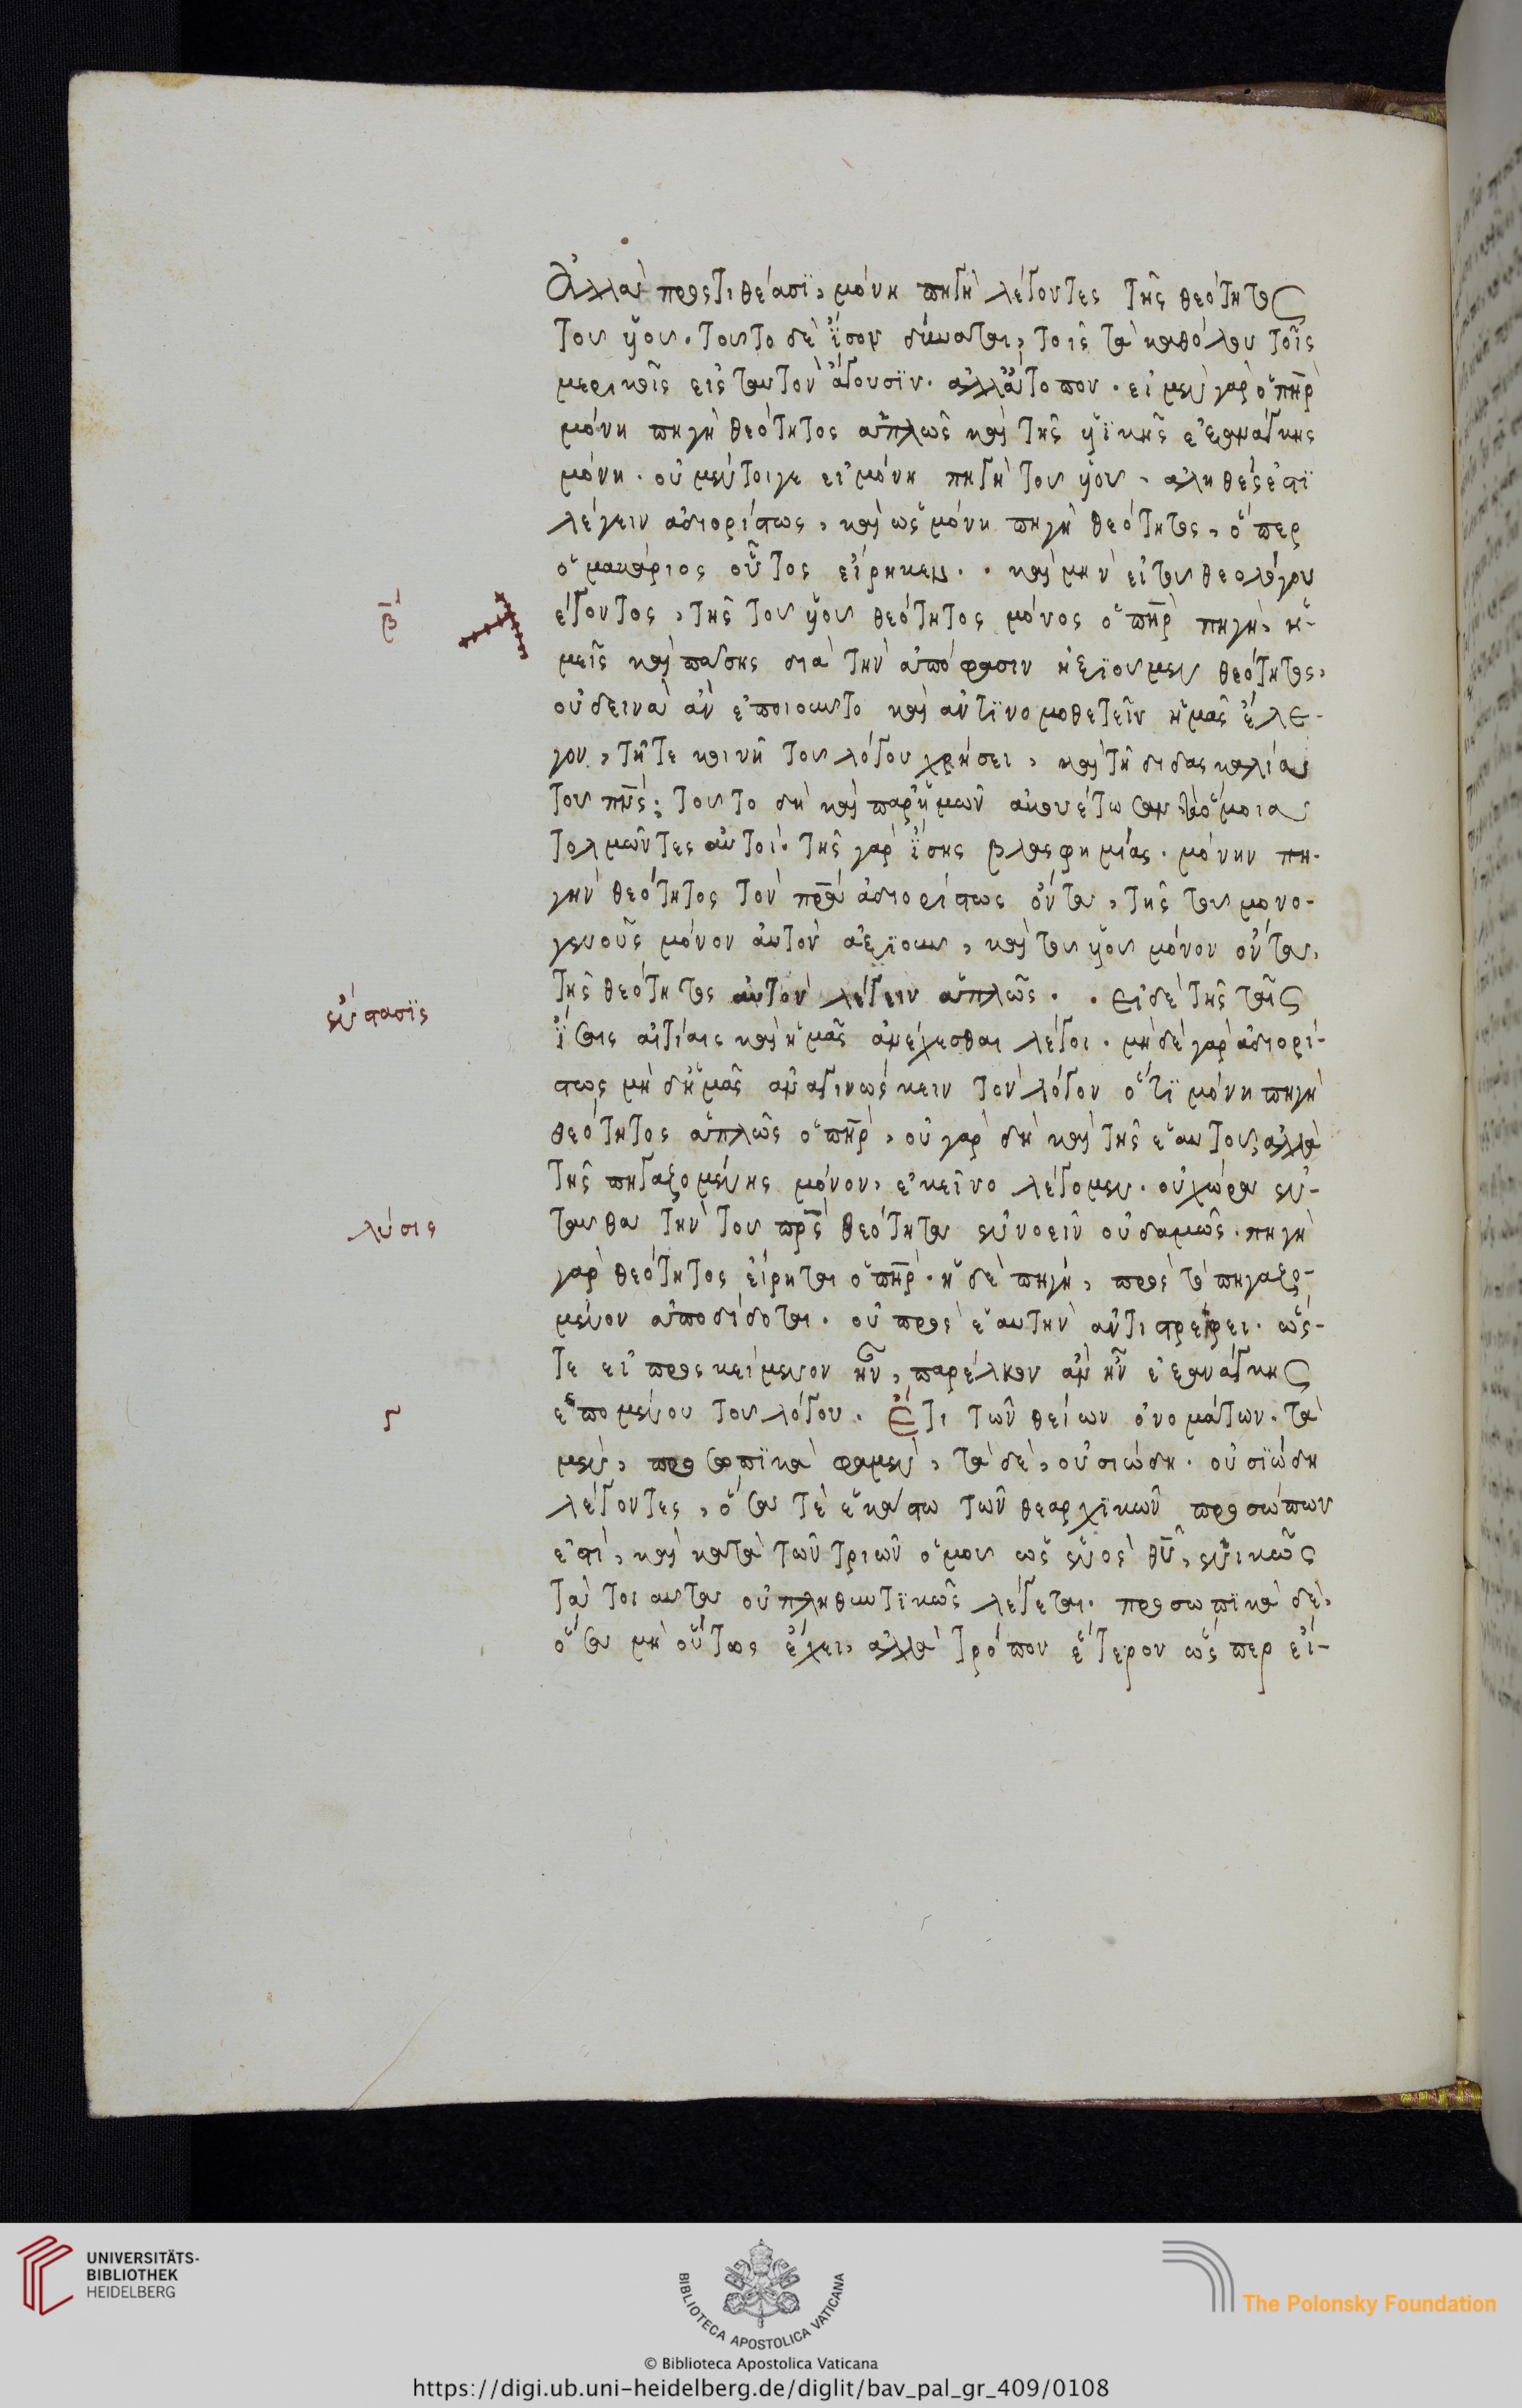 Ἀλλὰ προστιθέασι, μόνη πηγὴ λέγοντες τῆς θεότητος
του υἱου. τουτο δὲ ἴσον δύναται, τοις τὰ καθόλου τοῖς
μερικοῖς εἰς ταυτὸν ἄγουσιν. ἀλλ' ἄτοπον. εἰ μὲν γὰρ ὁ πηρ
μόνη πηγὴ θεότητος ἁπλῶς καὶ τῆς υἱικῆς ἐξανάγκης
μόνη. οὐ μέντοιγε εἰ μόνη πηγὴ του υἱου, ἀληθές ἐστι
λέγειν ἀδιορίστως, καὶ ὡς μόνη πηγὴ θεότητος, ὅπερ
ὁ μακάριος οὗτος εἴρηκεν. καὶ μὴν εἰ του θεολόγου
β
λέγοντος, τῆς του υἱου θεότητος μόνος ὁ πηρ πηγὴ, ἡ-
μεῖς καὶ πάσης διὰ τὴν ἀπόφασιν ἠξιουμεν θεότητος,
οὐ δεινὰ ἂν ἐποιουντο καὶ ἀντινομοθετεῖν ἡμᾶς ἔλε-
γον, τῆ τε κοινῆ του λόγου χρήσει, καὶ τῆ διδασκαλία
του πνς; τουτο δὴ καὶ παρ' ἡμῶν ἀκουέτωσαν τὰ ὅμοια
τολμῶντες αὐτοί. τῆς γὰρ ἴσης βλασφημίας. μόνην πη-
γὴν θεότητος τὸν πρα ἀδιορίστως ὄντα, τῆς του μονο-
γενοῦς μόνον αὐτὸν ἀξιουν, καὶ του υἱου μόνον ὄντα,
τῆς θεότητος αὐτὸν λέγειν ἁπλῶς. εἰ δὲ τῆς ταῖς
ἔνστασις
ἴσαις αἰτίαις καὶ ἡμᾶς ἀνέχεσθαι λέγοι. μηδὲ γὰρ ἀδιορί-
στως μὴ δ' ἡμᾶς ἀναγινώσκειν τὸν λόγον ὅτι μόνη πηγὴ
θεότητος ἁπλῶς ὁ πηρ, οὐ γὰρ δὴ καὶ τῆς ἑαυτου, ἀλλὰ
τῆς πηγαζομένης μόνον, ἐκεῖνο λέγομεν. οὐ χώρα ἐν-
λύσις
ταυθα τὴν του πρς θεότητα ἐννοεῖν οὐδαμῶς. πηγὴ
γὰρ θεότητος εἴρηται ὁ πηρ. ἡ δὲ πηγὴ, πρὸς τὸ πηγαζό-
μενον ἀποδίδοται. οὐ πρὸς ἑαυτὴν ἀντιστρέφει. ὥσ-
τε εἰ προσκείμενον ἦν, παρέλκον ἂν ἦν ἐξανάγκης
Γ
ἑπομένου του λόγου. Ἔτι τῶν θείων ὀνομάτων. τὰ
μὲν, προσωπικὰ φαμὲν, τὰ δὲ, οὐσιώδη. οὐσιώδη
λέγοντες, ὅσα τὲ ἑκάστω τῶν θεαρχικῶν προσώπων
ἐστὶ, καὶ κατὰ τῶν τριῶν ὁμου ὡς ἑνὸς θυ, ἑνικῶς
τὰ τοιαυτα οὐ πληθυντικῶς λέγεται. προσωπικὰ δὲ,
ὅσα μὴ οὕτως ἔχει, ἀλλὰ τρόπον ἕτερον ὥσπερ εἴ-
UNIVERSITÄTS-
BIBLIOTHEK
HEIDELBERG
BIBLIOTECA APOSTOLICA VATICANA
The Polonsky Foundation
© Biblioteca Apostolica Vaticana
https://digi.ub.uni-heidelberg.de/diglit/bav_pal_gr_409/0108